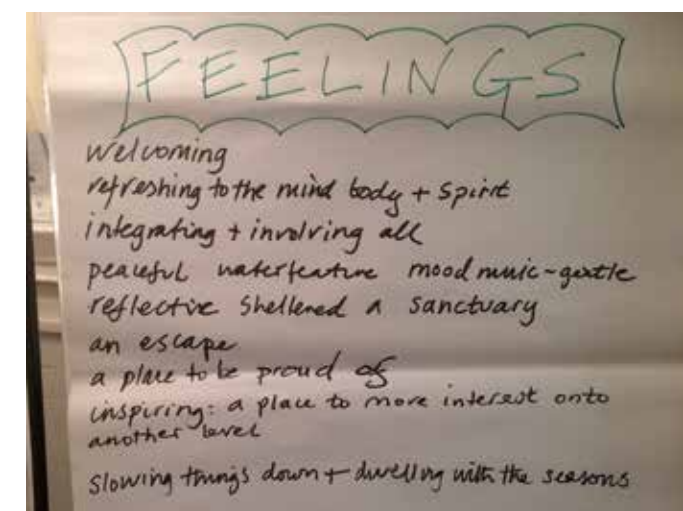 FEELINGS
welcoming
refreshing to the mind body + spirit
integrating + involving all
peaceful waterfeature mood music ~ gentle
reflective sheltered a sanctuary
an escape
a place to be proud of
inspiring: a place to move interest onto
another level
slowing things down + dwelling with the seasons